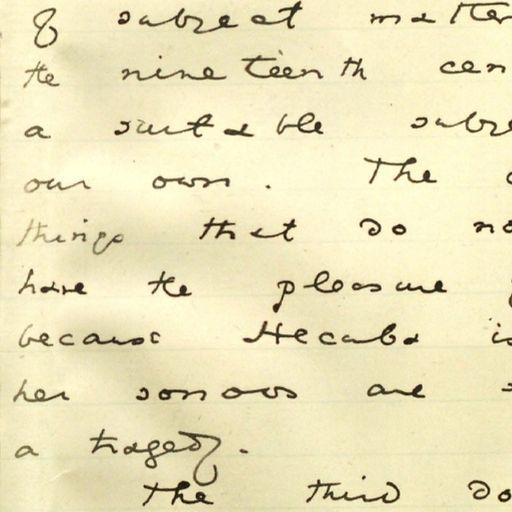 of subject matter
the nineteenth cen
a suitable subje
our own. The
things that do no
have the pleasure
because Hecuba is
her sorrows are
a tragedy.
The third do